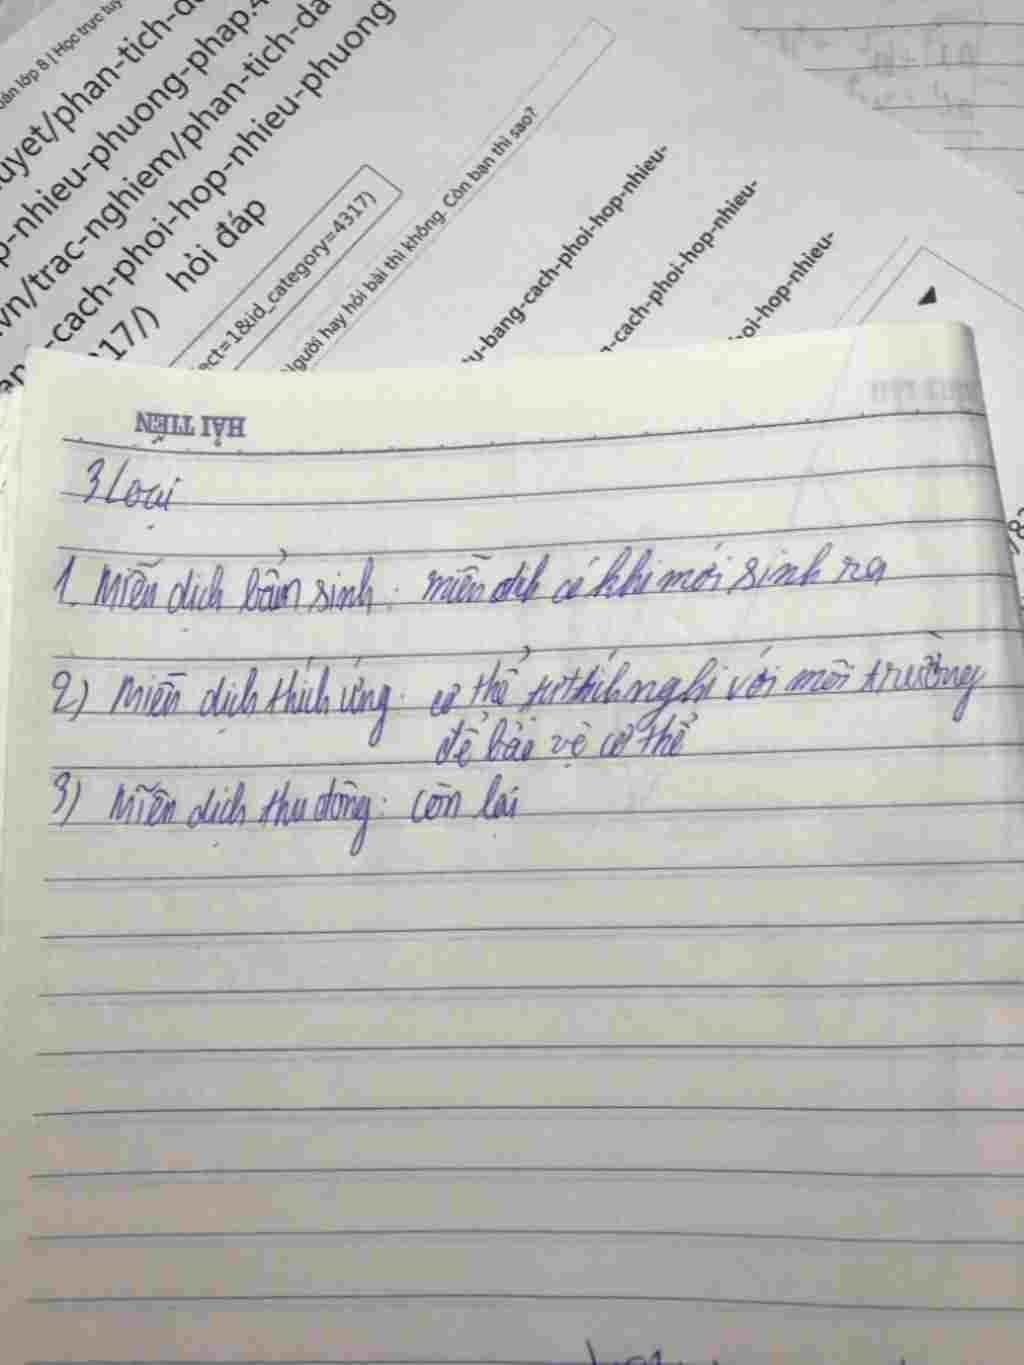 oán lớp 8 | Học trực tuy
uyet/phan-tich-d
p-nhieu-phuong-phap.
vn/trac-nghiem/phan-tich-da
-cach-phoi-hop-nhieu-phuong-
17/) hỏi đáp
ect=1&id_category=4317)
Người hay hỏi bài thì không. Còn bạn thì sao?
u-bang-cach-phoi-hop-nhieu-
-cach-phoi-hop-nhieu-
oi-hop-nhieu-
HẢI TIẾN
3 Loại
1. Miễn dịch bẩm sinh: miễn dịch có khi mới sinh ra
2) Miễn dịch thích ứng: cơ thể tự thích nghi với môi trường
để bảo vệ cơ thể
3) Miễn dịch thụ động: còn lại